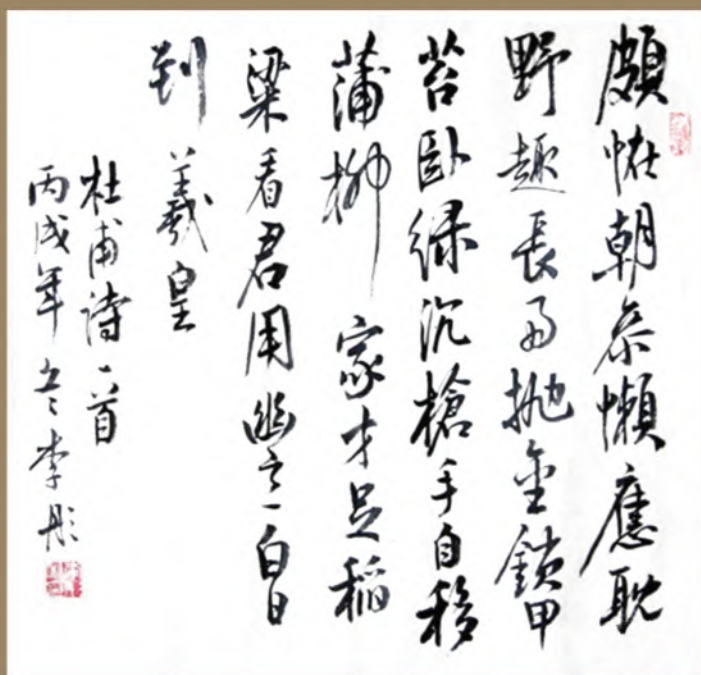 頗恠朝参懶應耽
野趣長雨抛金鎖甲
苔卧绿沉槍手自移
蒲柳家才足稻
粱看君用幽意白日
到羲皇
杜甫诗一首
丙戌年冬李彤